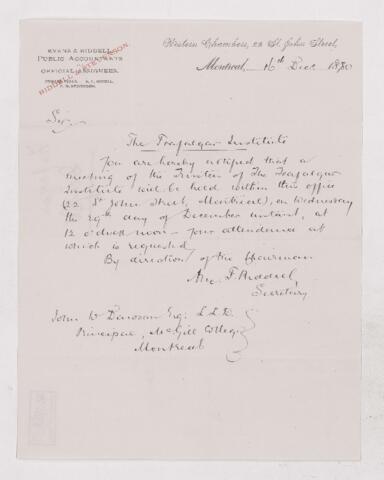 EVANS & RIDDELL
PUBLIC ACCOUNTANTS
OFFICIAL ASSIGNEES.
Western Chambers, 22 St. John Street,
Montreal, 16th Dec. 1880
Sir,
The Trafalgar Institute
You are hereby notified that a
meeting of the Trustees of The Trafalgar
Institute will be held within this office
(22 St John Street, Montreal), on Wednesday
the 29th day of December instant, at
12 o'clock noon - your attendance at
which is requested
By direction of the Chairman
Alex. F. Riddell
Secretary
John W Dawson Esq: L.L.D.
Principal, McGill College
Montreal